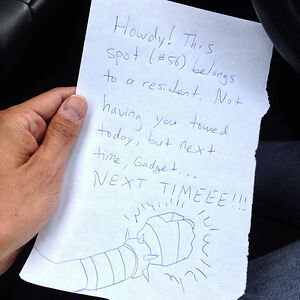 Howdy! This
spot (#56) belongs
to a resident. Not
having you towed
today, but next
time, Gadget...
NEXT TIMEEE!!!